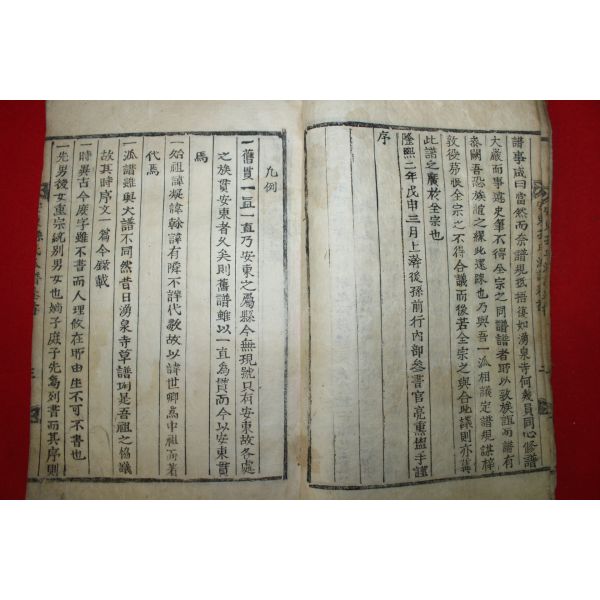 譜事咸曰當然而奈譜規甚捂復如湧泉寺何幾員同心修譜
大嚴而事遠史筆不得全宗之同譜譜者所以敦族誼而譜有
泰闕吾恐族誼之緣此還踈也乃與吾一派相議定譜規謀梓
敦後努張全宗之不得合議而後若全宗之與合此議則亦其
此譜之廣於全宗也
隆熙二年戊申三月上澣後孫前行內部叅書官亮熏盥手謹
序
凡例
一舊貫一直一直乃安東之属縣今無現號只有安東故各處
之族貫安東者久矣則舊譜雖以一直為貫而今以安東貫
焉
一始祖諱凝諱翰諱有瞬不詳代數故以諱世卿為中祖而著
代焉
一派譜雖與大譜不同然昔日湧泉寺草譜亦是吾祖之協議
故其時序文一篇今錄載
一時異古今度字雖不書而人理攸在所由生不可不書也
一先男後女重宗統別男女也嫡子庶子先為列書而其序則
三
二